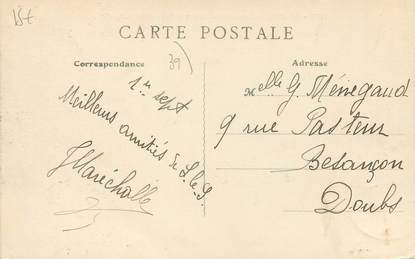 15€
CARTE POSTALE
39)
Correspondance
Adresse
1er sept
Meilleurs amitiés de S.l.S.
J Maréchalle
Melle G. Ménegaud
9 rue Pasteur
Besançon
Doubs